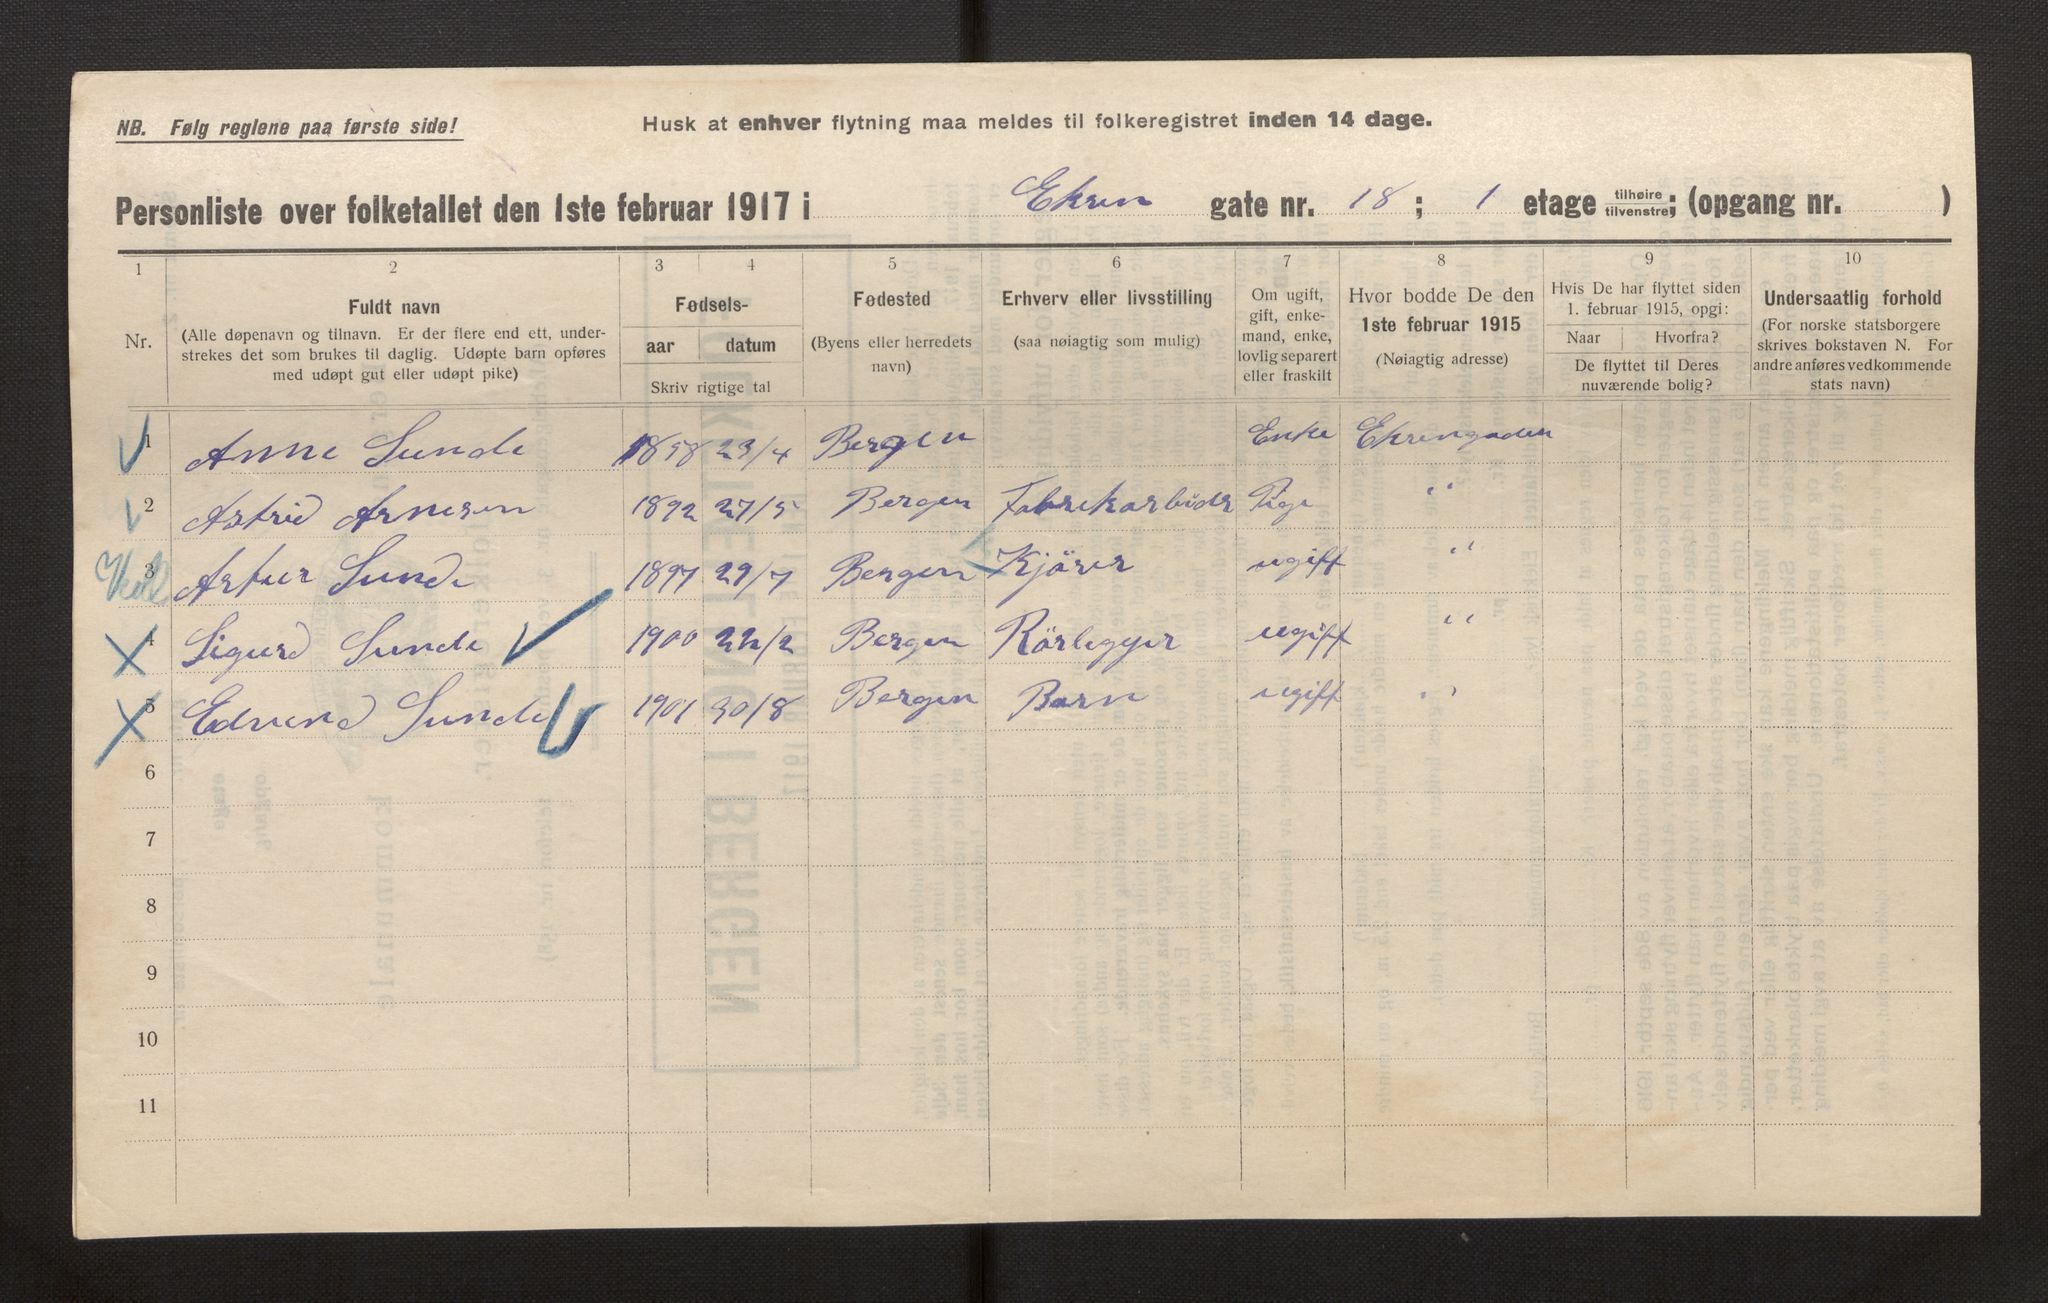 NB. Følg reglene paa første side!
Husk at enhver flytning maa meldes til folkeregistret inden 14 dage.
Personliste over folketallet den 1ste februar 1917 i Ekren gate nr. 18 ; 1 etage tilhøire tilvenstre; (opgang nr. )
1 2 3 4 5 6 7 8 9 10
Nr.
Fuldt navn
(Alle døpenavn og tilnavn. Er der flere end ett, under-
strekes det som brukes til daglig. Udøpte barn opføres
med udøpt gut eller udøpt pike)
Fødsels-
aar datum
Skriv rigtige tal
Fødested
(Byens eller herredets
navn)
Erhverv eller livsstilling
(saa nøiagtig som mulig)
Om ugift,
gift, enke-
mand, enke,
lovlig separert
eller fraskilt
Hvor bodde De den
1ste februar 1915
(Nøiagtig adresse)
Hvis De har flyttet siden
1. februar 1915, opgi:
Naar Hvorfra?
De flyttet til Deres
nuværende bolig?
Undersaatlig forhold
(For norske statsborgere
skrives bokstaven N. For
andre anføres vedkommende
stats navn)
1 Anne Sunde 1858 23/4 Bergen Enke Ekrengaden
2 Astrid Arnesen 1892 27/5 Bergen Fabrekarbeider Pige "
3 Artur Sunde 1897 29/7 Bergen Kjörer ugift "
4 Sigurd Sunde 1900 22/2 Bergen Rörlegger ugift "
5 Edvend Sunde 1901 30/8 Bergen Barn ugift "
6
7
8
9
10
11